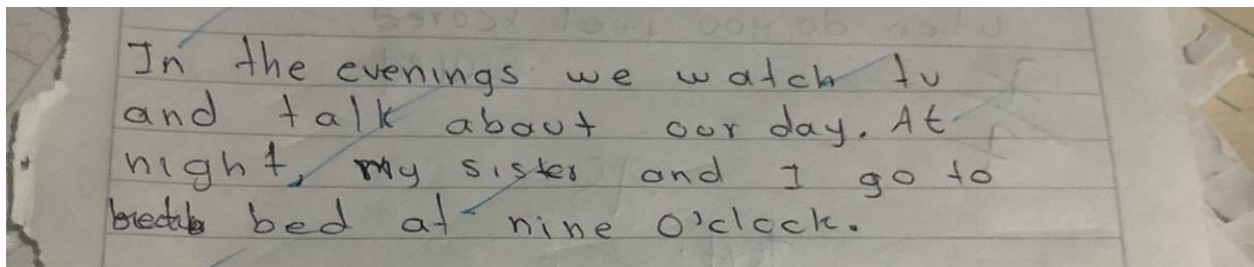 In the evenings we watch tv
and talk about our day. At
night, my sister and I go to
bed at nine o'clock.